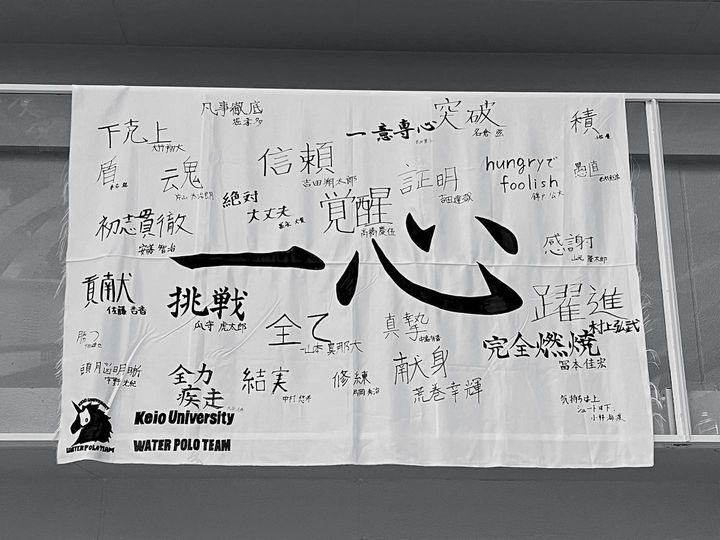 凡事徹底
下克上
一意専心
突破
名倉 蓮
積
信頼
吉田翔太郎
証明
hungryで
foolish
愚直
盾
云魂
片山 太治朗
絶対
大丈夫
覚醒
髙橋慶伍
初志貫徹
安藤 智治
感謝
一心
貢献
佐藤 吉香
挑戦
瓜守 虎太郎
全て
山本 真那大
真摯
躍進
村上弘武
完全燃焼
冨本佳宏
勝つ
頭脳明晰
全力
疾走
結実
修練
献身
荒巻幸輝
気持ちは上
シュートは下、
Keio University
WATER POLO TEAM
WATER POLO TEAM